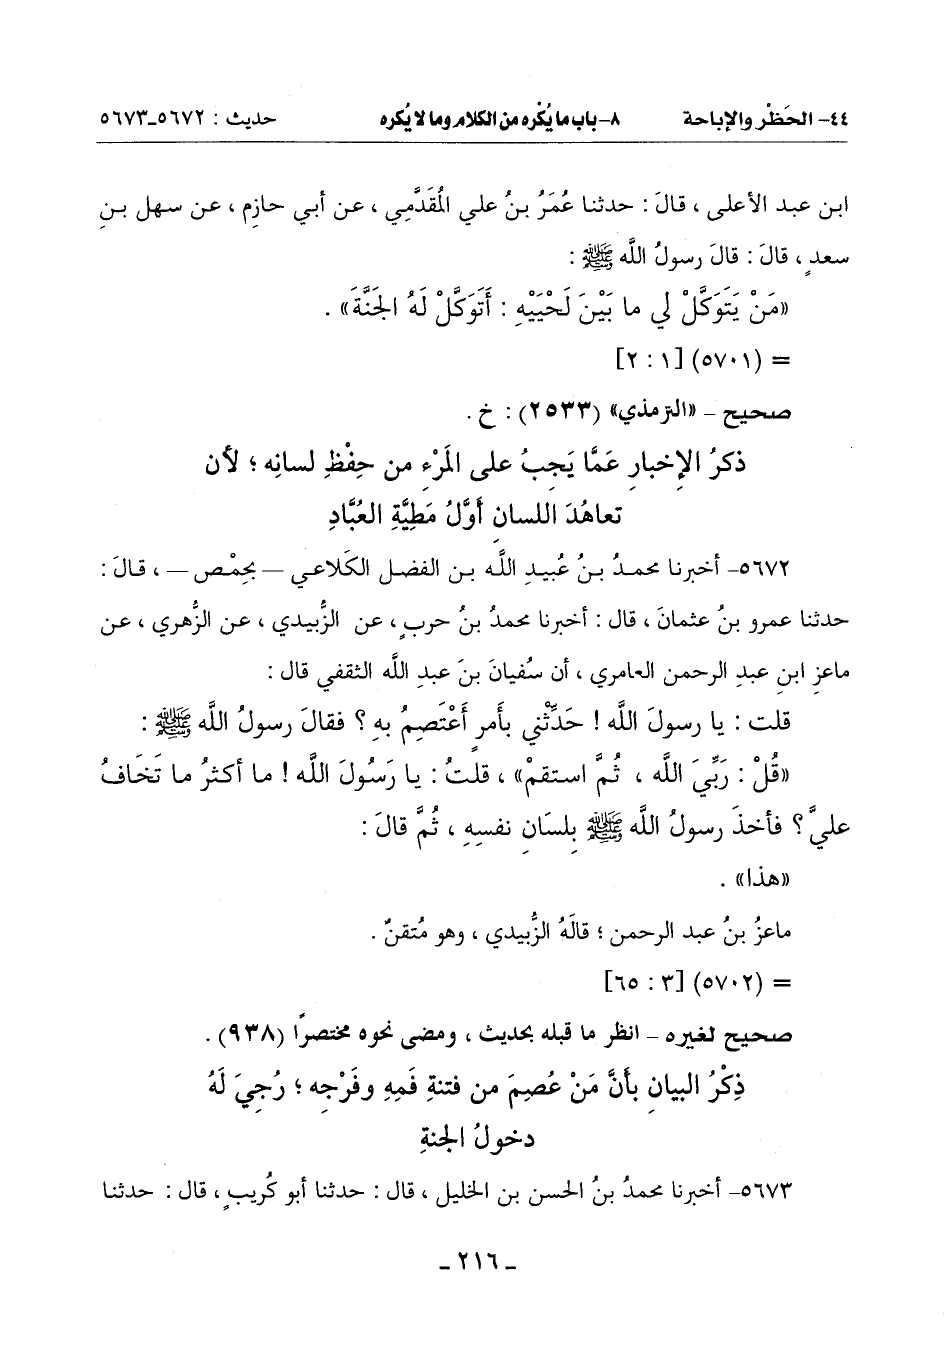 ٤٤- الحَظْر والإباحة ٨- باب ما يُكْره من الكلام وما لا يُكره حديث : ٥٦٧٢-٥٦٧٣
ابن عبد الأعلى ، قالَ : حدثنا عُمَرُ بنُ علي المُقَدَّمِي ، عن أبي حازِم ، عن سهل بنِ
سعدٍ ، قالَ : قالَ رسولُ اللَّه ﷺ :
«مَنْ يَتَوَكَّلْ لي ما بَيْنَ لَحْيَيْهِ : أَتَوَكَّلْ لَهُ الجَنَّةَ» .
= (٥٧٠١) [١ : ٢]
صحيح - «الترمذي» (٢٥٣٣) : خ .
ذكرُ الإخبارِ عَمَّا يَجِبُ على المَرْءِ من حِفْظِ لسانِه ؛ لأن
تعاهُدَ اللسانِ أَوَّلُ مَطِيَّةِ العُبَّادِ
٥٦٧٢- أخبرنا محمدُ بنُ عُبيدِ اللَّه بن الفضل الكَلاعي – بحِمْص – ، قالَ :
حدثنا عمرو بنُ عثمانَ ، قال : أخبرنا محمدُ بنُ حربٍ ، عن الزُّبيدي ، عن الزُّهري ، عن
ماعزِ ابنِ عبدِ الرحمن العامري ، أن سُفيانَ بنَ عبدِ اللَّه الثقفي قال :
قلت : يا رسولَ اللَّه ! حَدِّثْني بأمرٍ أَعْتَصِمُ بهِ ؟ فقالَ رسولُ اللَّه ﷺ :
«قُلْ : رَبِّيَ اللَّه ، ثُمَّ استقمْ» ، قلتُ : يا رَسُولَ اللَّه ! ما أكثرُ ما تَخَافُ
عليَّ ؟ فأخذَ رسولُ اللَّه ﷺ بِلسَانِ نفسِهِ ، ثُمَّ قالَ :
«هذا» .
ماعزُ بنُ عبد الرحمن ؛ قالَهُ الزُّبيدي ، وهو مُتقنٌ .
= (٥٧٠٢) [٣ : ٦٥]
صحيح لغيره - انظر ما قبله بحديث ، ومضى نحوه مختصرًا (٩٣٨) .
ذِكْرُ البيانِ بأنَّ مَنْ عُصِمَ من فتنةِ فَمِهِ وفَرْجِه ؛ رُجِيَ لَهُ
دخولُ الجنةِ
٥٦٧٣- أخبرنا محمدُ بنُ الحسن بن الخليل ، قال : حدثنا أبو كُريبٍ ، قال : حدثنا
- ٢١٦ -